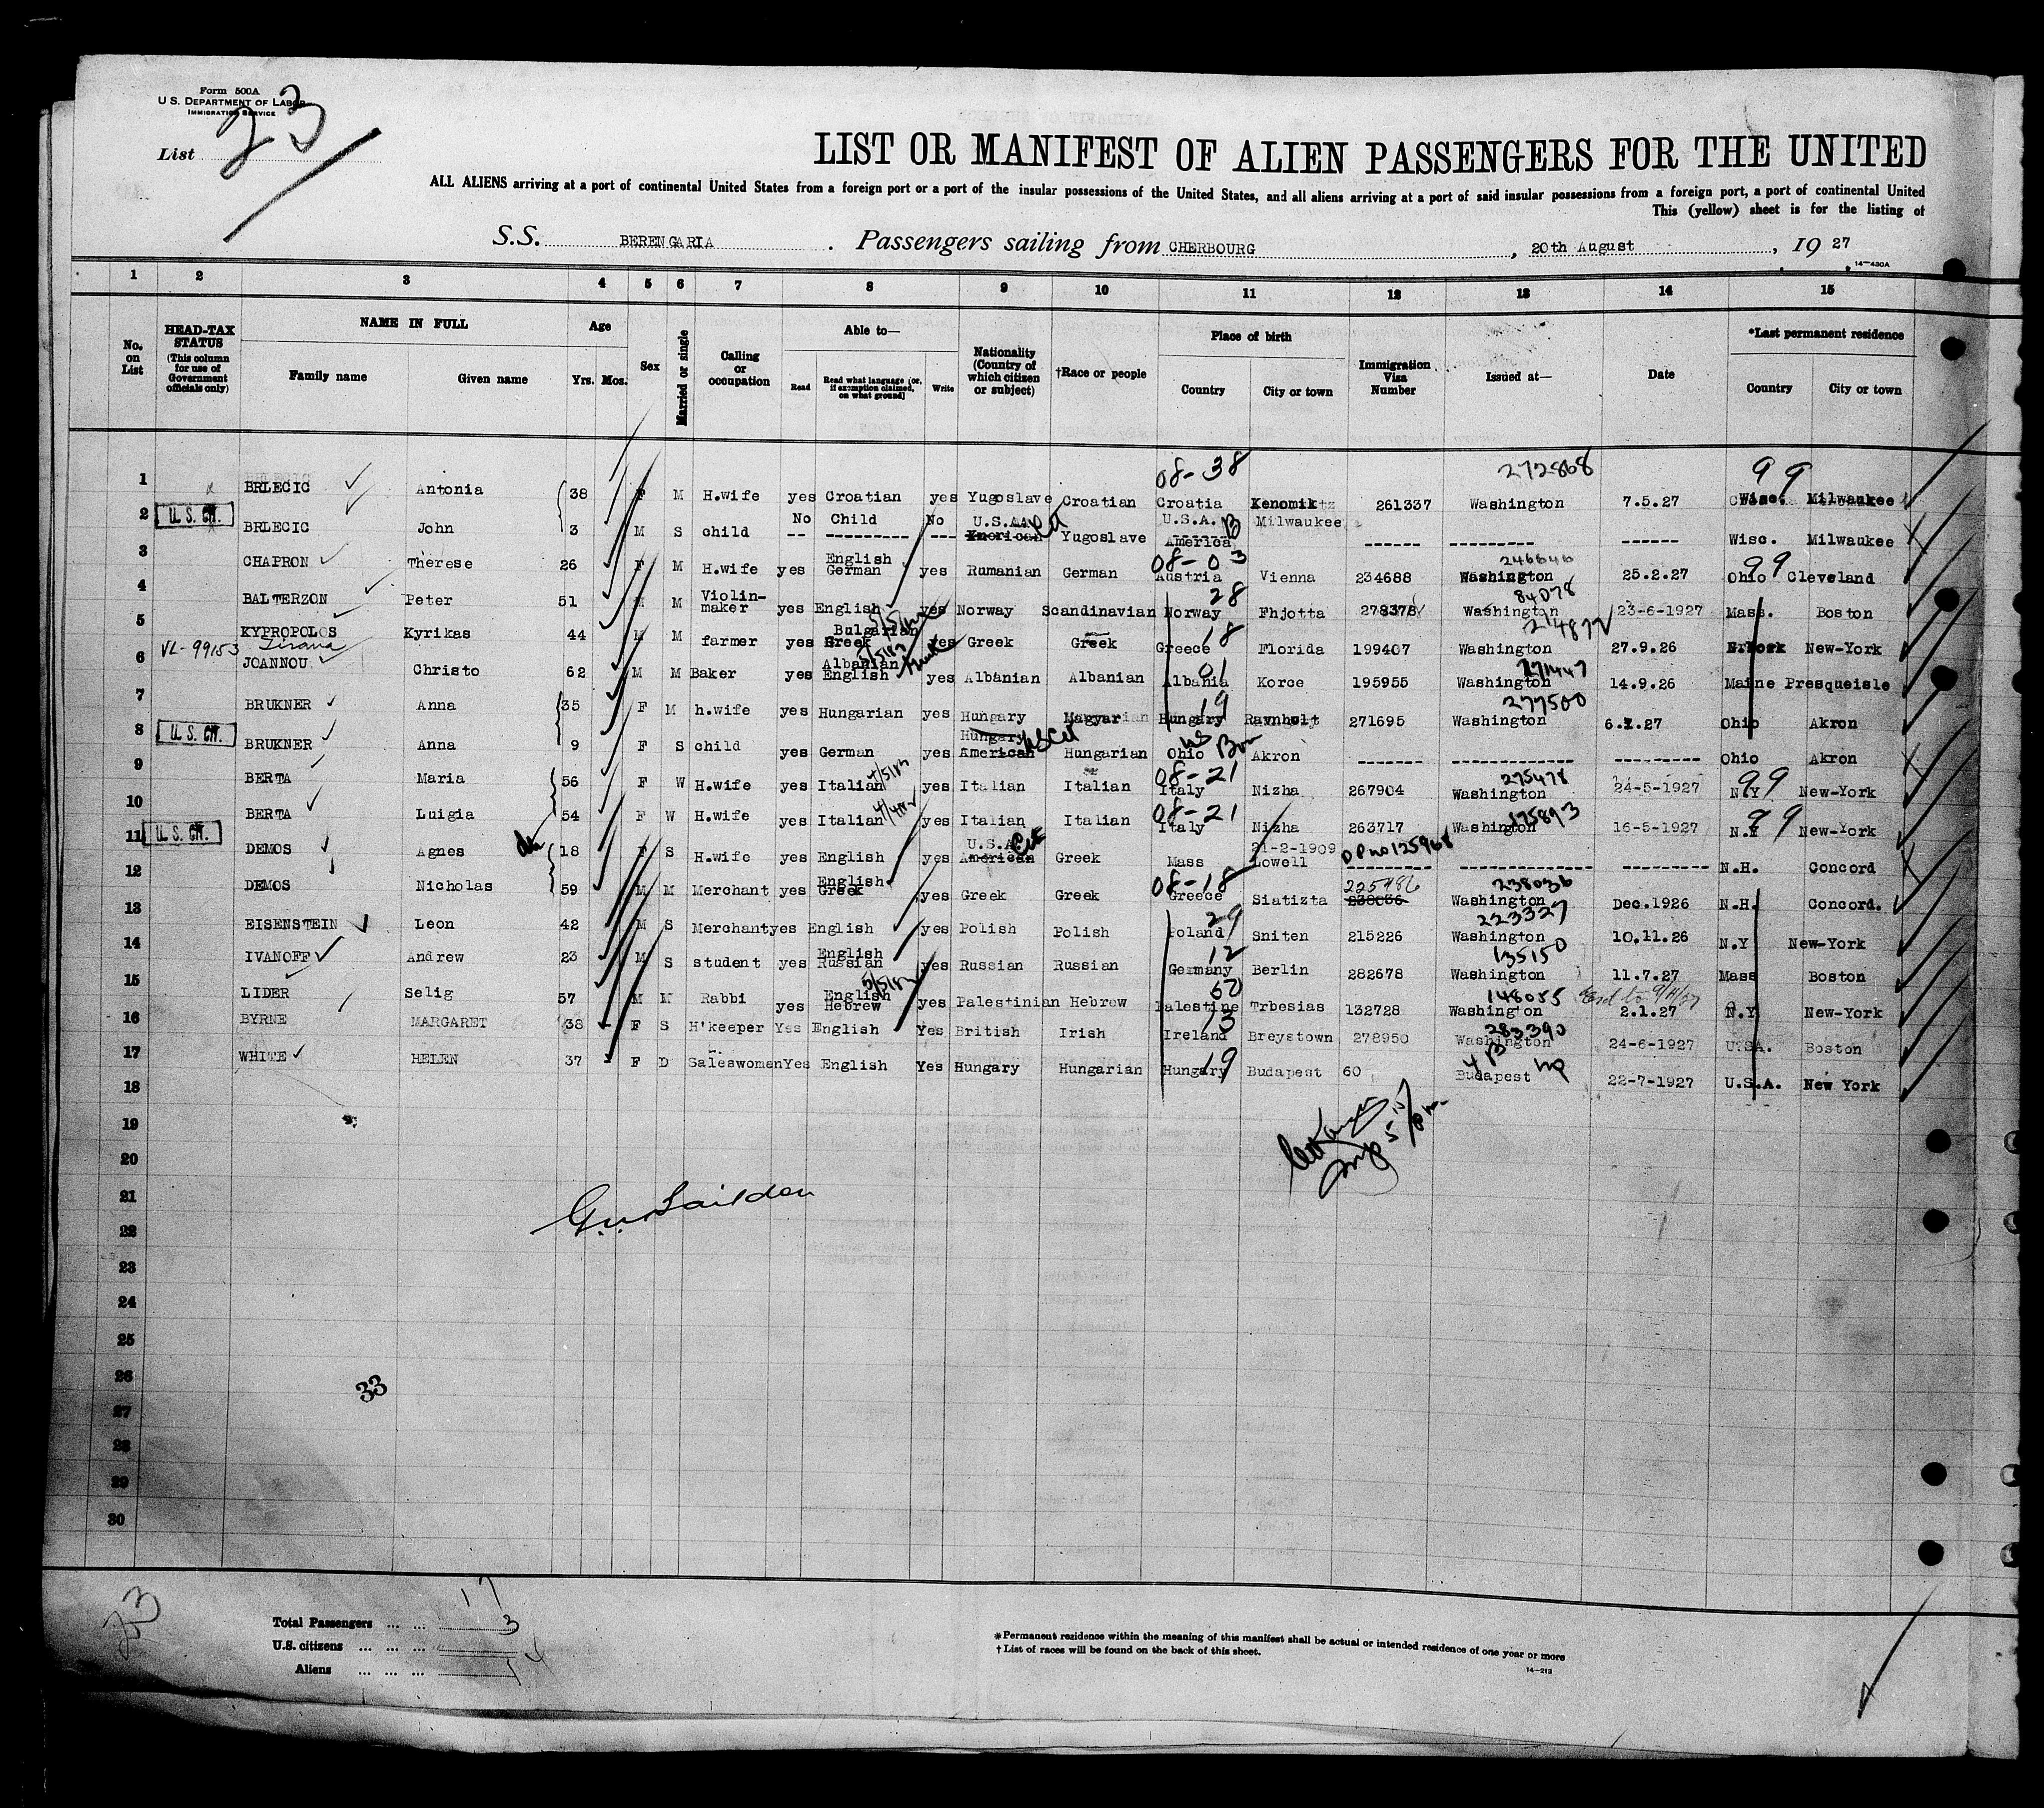 Form 500A
U.S. DEPARTMENT OF LABOR
IMMIGRATION SERVICE
List 23
LIST OR MANIFEST OF ALIEN PASSENGERS FOR THE UNITED
ALL ALIENS arriving at a port of continental United States from a foreign port or a port of the insular possessions of the United States, and all aliens arriving at a port of said insular possessions from a foreign port, a port of continental United
This (yellow) sheet is for the listing of
S.S. BERENGARIA . Passengers sailing from CHERBOURG , 20th August , 19 27
14-430A
1 2 3 4 5 6 7 8 9 10 11 12 13 14 15
No. on List
HEAD-TAX STATUS (This column for use of Government officials only)
NAME IN FULL
Family name Given name
Age
Yrs. Mos.
Sex
Married or single
Calling or occupation
Able to—
Read Read what language [or, if exemption claimed, on what ground] Write
Nationality (Country of which citizen or subject)
†Race or people
Place of birth
Country City or town
Immigration Visa Number
Issued at—
Date
*Last permanent residence
Country City or town
08-38 272868 99
1 BRLECIC Antonia 38 F M H.wife yes Croatian yes Yugoslave Croatian Croatia Kenomiktz 261337 Washington 7.5.27 Wisc. Milwaukee
No Child No U.S.A. U.S.A. B Milwaukee
2 U.S. CIT. BRLECIC John 3 M S child -- --------- --- American Yugoslave America ------ --------- ------ Wisc. Milwaukee
English 08-03 246646 99
3 CHAPRON Therese 26 F M H.wife yes German yes Rumanian German Austria Vienna 234688 Washington 25.2.27 Ohio Cleveland
28 84078
4 BALTERZON Peter 51 M M Violin-maker yes English yes Norway Scandinavian Norway Fhjotta 278378 Washington 23-6-1927 Mass. Boston
Bulgarian 18 214872
5 KYPROPOLOS Kyrikas 44 M M farmer yes Greek yes Greek Greek Greece Florida 199407 Washington 27.9.26 New-York
VL-99153 Albanian 01 271447
6 JOANNOU Christo 62 M M Baker yes English yes Albanian Albanian Albania Korce 195955 Washington 14.9.26 Maine Presqueisle
19 277500
7 BRUKNER Anna 35 F M h.wife yes Hungarian yes Hungary Magyar Hungary Ravnholt 271695 Washington Ohio Akron
Hungary US Cit US Born
8 U.S. CIT. BRUKNER Anna 9 F S child yes German yes American Hungarian Ohio Akron ------- --------- --------- Ohio Akron
08-21 275478 99
9 BERTA Maria 56 F W H.wife yes Italian yes Italian Italian Italy Nizha 267904 Washington 24-5-1927 N.Y New-York
08-21 275893 99
10 BERTA Luigia 54 F W H.wife yes Italian yes Italian Italian Italy Nizha 263717 Washington 16-5-1927 N.Y New-York
U.S.A. Cit 21-2-1909 DP no 125968
11 U.S. CIT. DEMOS Agnes 18 F S H.wife yes English yes American Greek Mass Lowell --------- -------------- --------- N.H. Concord
English 08-18 225786 238036
12 DEMOS Nicholas 59 M M Merchant yes Greek yes Greek Greek Greece Siatizta 238036 Washington Dec.1926 N.H. Concord.
29 223327
13 EISENSTEIN Leon 42 M S Merchant yes English yes Polish Polish Poland Sniten 215226 Washington 10.11.26 N.Y New-York
English 12 135150
14 IVANOFF Andrew 23 M S student yes Russian yes Russian Russian Germany Berlin 282678 Washington 11.7.27 Mass Boston
English 148055
15 LIDER Selig 57 M M Rabbi yes Hebrew yes Palestinian Hebrew Palestine Trbesias 132728 Washington 2.1.27 N.Y New-York
13 283390
16 BYRNE MARGARET 38 F S H'keeper Yes English Yes British Irish Ireland Breystown 278950 Washington 24-6-1927 U.SA. Boston
19
17 WHITE HELEN 37 F D Saleswomen Yes English Yes Hungary Hungarian Hungary Budapest 60 Budapest 22-7-1927 U.S.A. New York
18
19
20
21
22
23
24
25
26
33
27
28
29
30
23
Total Passengers ... ... 17
U.S. citizens ... ... ... 3
Aliens ... ... ... 14
*Permanent residence within the meaning of this manifest shall be actual or intended residence of one year or more
†List of races will be found on the back of this sheet.
14-213